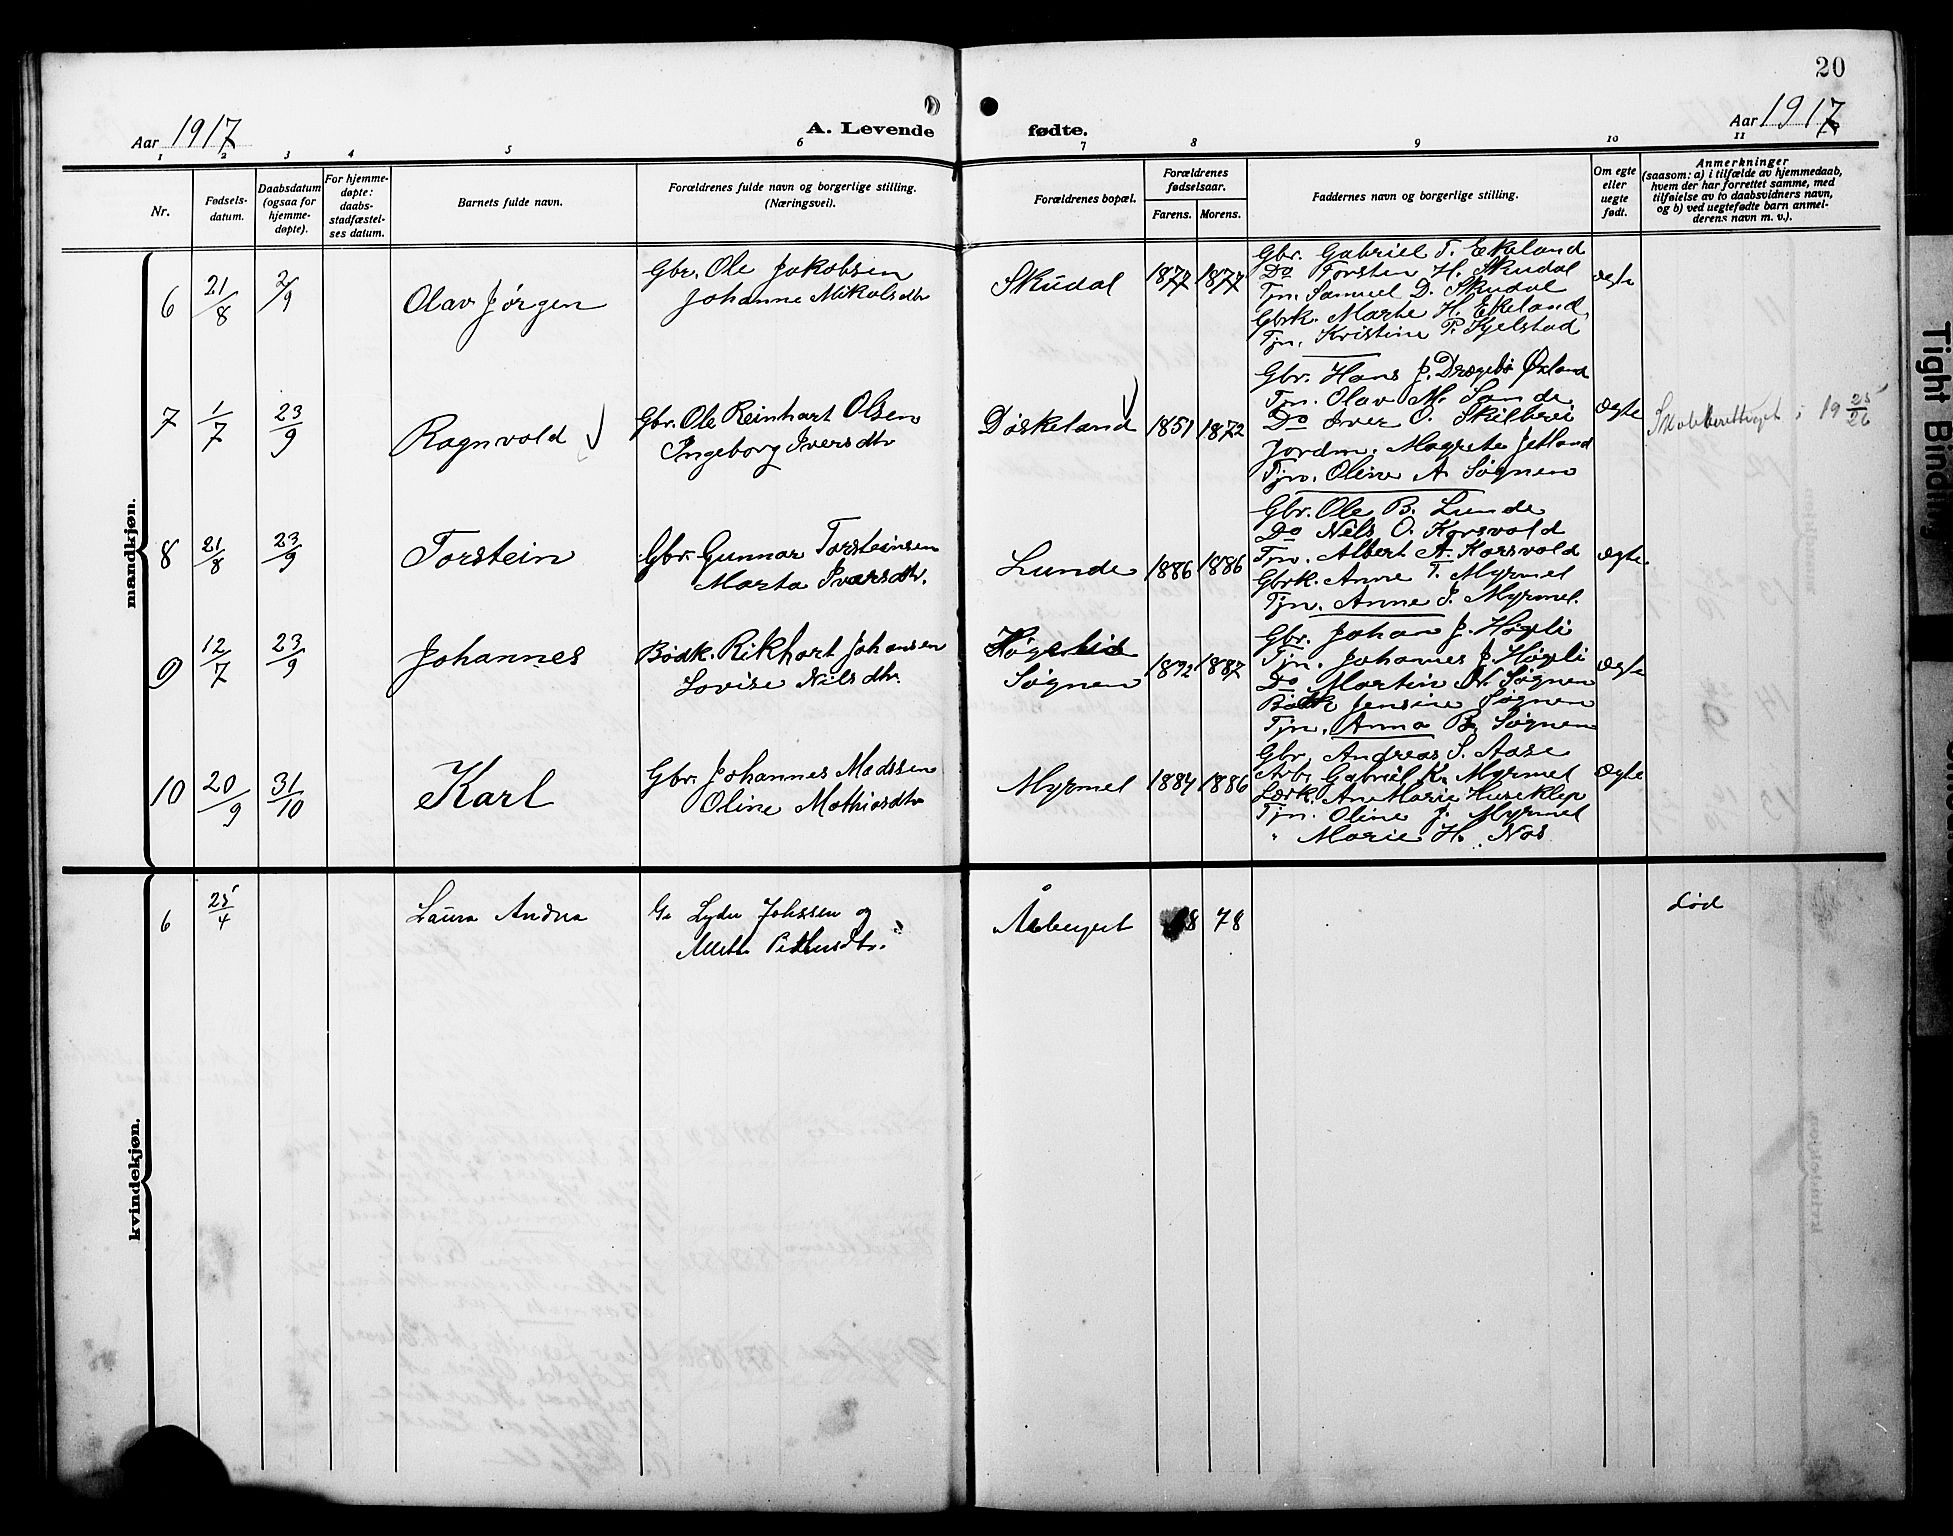 20
Aar 1917
A. Levende
fødte.
Aar 1917
1 2 3 4 5 6 7 8 9 10 11
Nr.
Fødsels-
datum.
Daabsdatum
(ogsaa for
hjemme-
døpte).
For hjemme-
døpte:
daabs-
stadfæstel-
ses datum.
Barnets fulde navn.
Forældrenes fulde navn og borgerlige stilling.
(Næringsvei).
Forældrenes bopæl.
Forældrenes
fødselsaar.
Farens. Morens.
Faddernes navn og borgerlige stilling.
Om egte
eller
uegte
født.
Anmerkninger
(saasom: a) i tilfælde av hjemmedaab,
hvem der har forrettet samme, med
tilføielse av to daabsvidners navn,
og b) ved uegtefødte barn anmel-
derens navn m. v.).
mandkjøn.
6 21/8 2/9 Olav Jørgen
Gbr. Ole Jakobsen
Johanne Mikolsdtr
Skudal 1877 1877
Gbr. Gabriel T. Ekeland
Do Torsten H. Skudal
Tjn. Samuel D. Skudal
Gbrk. Marte H. Ekeland
Tjn. Kristine P. Kjelstad
ægte
7 1/7 23/9 Ragnvald
Gbr. Ole Reinhart Olsen
Ingeborg Iversdtr
Døskeland 1851 1872
Gbr. Hans J. Drægebø Øxland
Tjn. Olav M. Sande
Do Iver O. Skilbrei
Jordm. Magrete Jetland
Tjn. Oline A. Søgnen
Ægte
i 19 25/26
8 21/8 23/9 Torstein
Gbr. Gunnar Torsteinsen
Marta Iversdtr.
Lunde 1886 1886
Gbr. Ole B. Lunde
Do Nils O. Korsvold
Tjn. Albert A. Korsvold
Gbrk. Anne T. Myrmel
Tjn. Anne J. Myrmel.
Ægte.
9 12/7 23/9 Johannes
Bødk. Rikhart Johansen
Lovise Nilsdtr.
Søgnen 1892 1887
Gbr. Johan J. Høgli
Tjn. Johannes J. Høgli
Do Martin N. Søgnen
Bødk Jensine Søgnen
Tjn. Anna B. Søgnen
Ægte
10 20/9 31/10 Karl
Gbr. Johannes Madssen
Oline Mathiasdtr
Myrmel 1884 1886
Gbr. Andreas S. Aase
Arb. Gabriel K. Myrmel
Lærk. An Marie Huseklep
Tjn. Oline J. Myrmel
" Marie H. Nos
Ægte
kvindekjøn.
6 25/4 Laura Andrea
Lyder Johssen og
78
død
Tight Binding